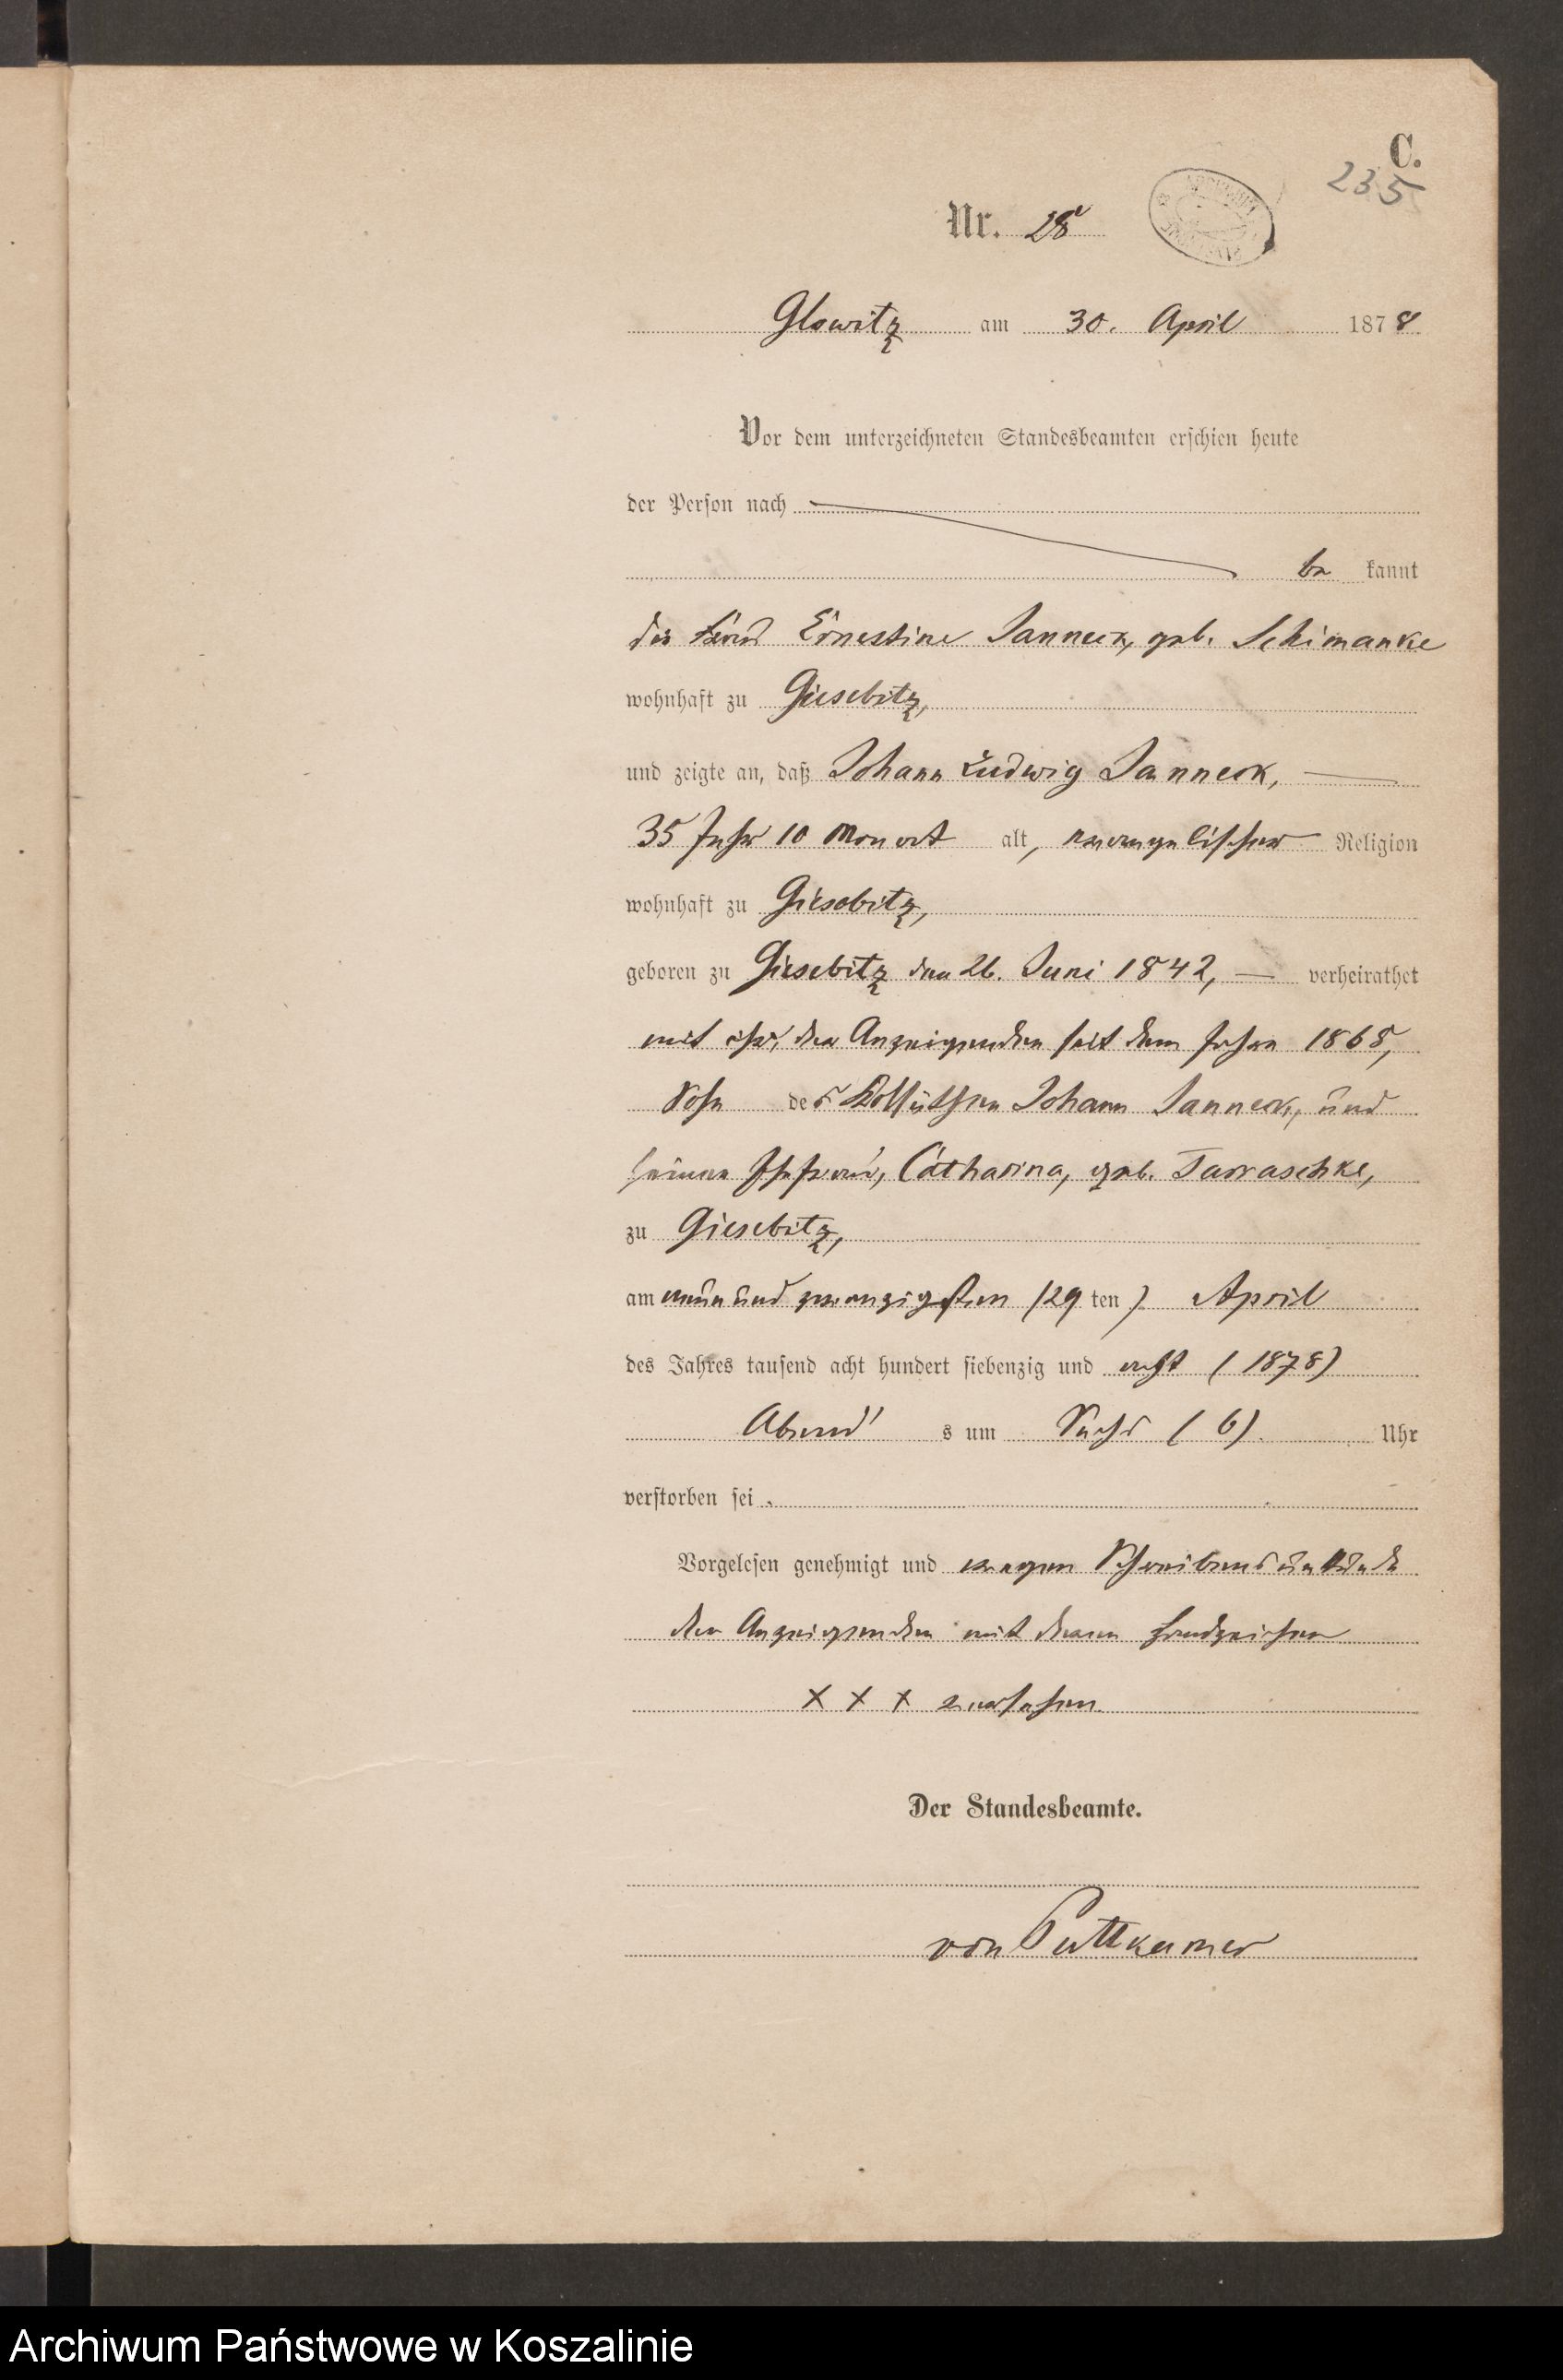 C.
235
Nr. 28
Glowitz am 30. April 1878
Vor dem unterzeichneten Standesbeamten erschien heute
der Person nach
be kannt
die Frau Ernestine Janneck, geb. Schimanke
wohnhaft zu Giesebitz,
und zeigte an, daß Johann Ludwig Janneck,
35 Jahr 10 Monat alt, evangelischer Religion
wohnhaft zu Giesebitz,
geboren zu Giesebitz den 26. Juni 1842, verheirathet
mit ihr, der Anzeigenden seit dem Jahre 1868,
Sohn des Kossäthen Johann Janneck, und
seiner Ehefrau, Catharina, geb. Tarraschke,
zu Giesebitz,
am neun und zwanzigsten (29 ten) April
des Jahres tausend acht hundert siebenzig und acht (1878)
Abend s um Sechs (6) Uhr
verstorben sei.
Vorgelesen genehmigt und wegen Schreibensunkunde
der Anzeigenden mit deren Handzeichen
X X X versehen.
Der Standesbeamte.
von Puttkamer
Archiwum Państwowe w Koszalinie